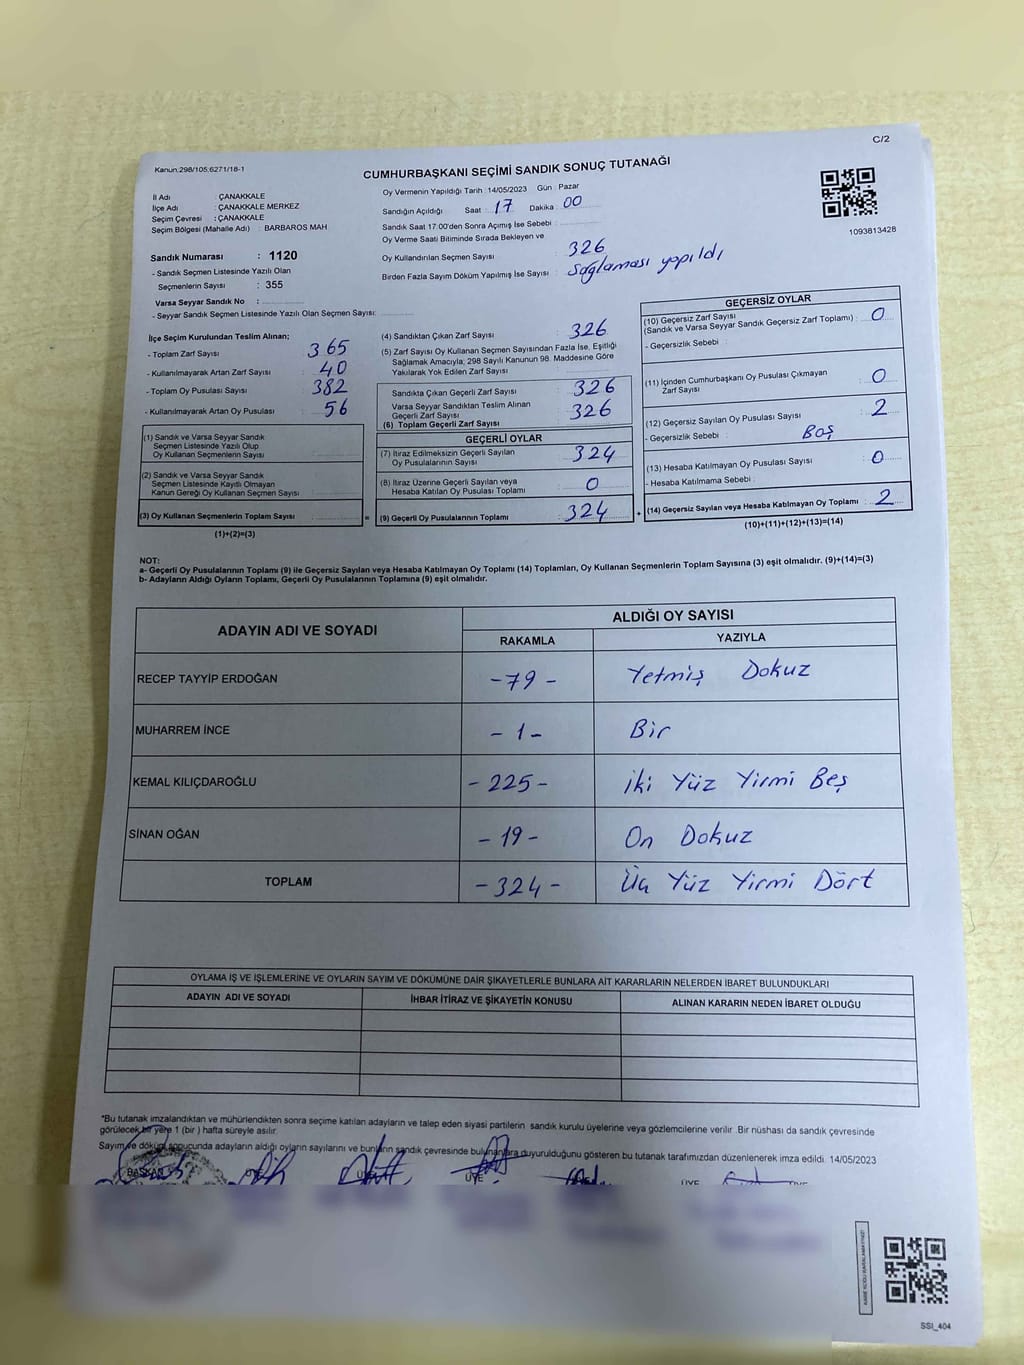 C/2
Kanun:298/105;6271/18-1
CUMHURBAŞKANI SEÇİMİ SANDIK SONUÇ TUTANAĞI
İl Adı : ÇANAKKALE
İlçe Adı : ÇANAKKALE MERKEZ
Seçim Çevresi : ÇANAKKALE
Seçim Bölgesi (Mahalle Adı) : BARBAROS MAH
Oy Vermenin Yapıldığı Tarih : 14/05/2023 Gün : Pazar
Sandığın Açıldığı Saat : 17 Dakika : 00
Sandık Saat 17.00'den Sonra Açımış İse Sebebi :
Oy Verme Saati Bitiminde Sırada Bekleyen ve
Oy Kullandırılan Seçmen Sayısı : 326
Birden Fazla Sayım Döküm Yapılmış İse Sayısı : Sağlaması yapıldı
1093813428
Sandık Numarası : 1120
- Sandık Seçmen Listesinde Yazılı Olan
Seçmenlerin Sayısı : 355
Varsa Seyyar Sandık No :
- Seyyar Sandık Seçmen Listesinde Yazılı Olan Seçmen Sayısı:
İlçe Seçim Kurulundan Teslim Alınan;
- Toplam Zarf Sayısı : 365
- Kullanılmayarak Artan Zarf Sayısı : 40
- Toplam Oy Pusulası Sayısı : 382
- Kullanılmayarak Artan Oy Pusulası : 56
(1) Sandık ve Varsa Seyyar Sandık
Seçmen Listesinde Yazılı Olup
Oy Kullanan Seçmenlerin Sayısı :
(2) Sandık ve Varsa Seyyar Sandık
Seçmen Listesinde Kayıtlı Olmayan
Kanun Gereği Oy Kullanan Seçmen Sayısı :
(3) Oy Kullanan Seçmenlerin Toplam Sayısı :
(1)+(2)=(3)
=
(4) Sandıktan Çıkan Zarf Sayısı : 326
(5) Zarf Sayısı Oy Kullanan Seçmen Sayısından Fazla İse, Eşitliği
Sağlamak Amacıyla; 298 Sayılı Kanunun 98. Maddesine Göre
Yakılarak Yok Edilen Zarf Sayısı :
Sandıkta Çıkan Geçerli Zarf Sayısı : 326
Varsa Seyyar Sandıktan Teslim Alınan
Geçerli Zarf Sayısı : 326
(6) Toplam Geçerli Zarf Sayısı :
GEÇERLİ OYLAR
(7) İtiraz Edilmeksizin Geçerli Sayılan
Oy Pusulalarının Sayısı : 324
(8) İtiraz Üzerine Geçerli Sayılan veya
Hesaba Katılan Oy Pusulası Toplamı : 0
(9) Geçerli Oy Pusulalarının Toplamı : 324
+
GEÇERSİZ OYLAR
(10) Geçersiz Zarf Sayısı
(Sandık ve Varsa Seyyar Sandık Geçersiz Zarf Toplamı) : 0
- Geçersizlik Sebebi :
(11) İçinden Cumhurbaşkanı Oy Pusulası Çıkmayan
Zarf Sayısı : 0
(12) Geçersiz Sayılan Oy Pusulası Sayısı : 2
- Geçersizlik Sebebi : Boş
(13) Hesaba Katılmayan Oy Pusulası Sayısı : 0
- Hesaba Katılmama Sebebi :
(14) Geçersiz Sayılan veya Hesaba Katılmayan Oy Toplamı : 2
(10)+(11)+(12)+(13)=(14)
NOT:
a- Geçerli Oy Pusulalarının Toplamı (9) ile Geçersiz Sayılan veya Hesaba Katılmayan Oy Toplamı (14) Toplamları, Oy Kullanan Seçmenlerin Toplam Sayısına (3) eşit olmalıdır. (9)+(14)=(3)
b- Adayların Aldığı Oyların Toplamı, Geçerli Oy Pusulalarının Toplamına (9) eşit olmalıdır.
ADAYIN ADI VE SOYADI
ALDIĞI OY SAYISI
RAKAMLA YAZIYLA
RECEP TAYYİP ERDOĞAN -79- Yetmiş Dokuz
MUHARREM İNCE -1- Bir
KEMAL KILIÇDAROĞLU -225- İki Yüz Yirmi Beş
SİNAN OĞAN -19- On Dokuz
TOPLAM -324- Üç Yüz Yirmi Dört
OYLAMA İŞ VE İŞLEMLERİNE VE OYLARIN SAYIM VE DÖKÜMÜNE DAİR ŞİKAYETLERLE BUNLARA AİT KARARLARIN NELERDEN İBARET BULUNDUKLARI
ADAYIN ADI VE SOYADI İHBAR İTİRAZ VE ŞİKAYETİN KONUSU ALINAN KARARIN NEDEN İBARET OLDUĞU
*Bu tutanak imzalandıktan ve mühürlendikten sonra seçime katılan adayların ve talep eden siyasi partilerin sandık kurulu üyelerine veya gözlemcilerine verilir .Bir nüshası da sandık çevresinde
görülecek bir yere 1 (bir ) hafta süreyle asılır.
Sayım ve döküm sonucunda adayların aldığı oyların sayılarını ve bunların sandık çevresinde bulunanlara duyurulduğunu gösteren bu tutanak tarafımızdan düzenlenerek imza edildi. 14/05/2023
BAŞKAN ÜYE ÜYE ÜYE ÜYE ÜYE
SSI_404